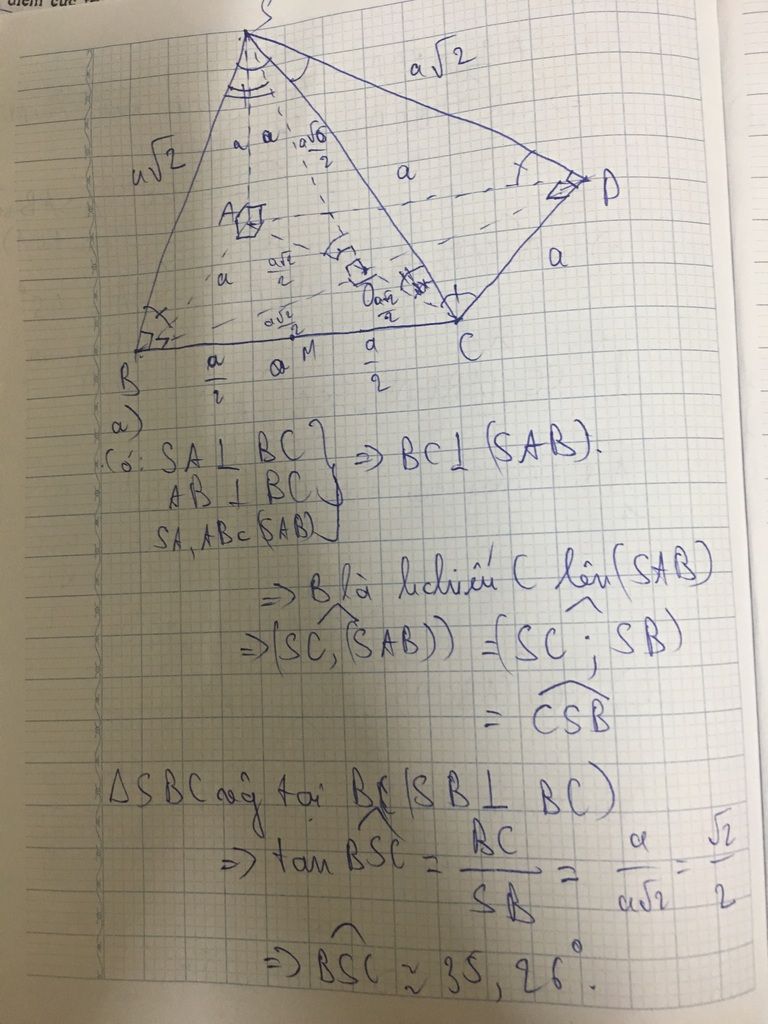 S
a√2
a√2
a
a
a√6/2
a
A
D
a
a√2/2
a
O
a√2/2
a√2/2
B
a/2
a
M
a/2
C
a)
Có: SA ⊥ BC
AB ⊥ BC
SA, AB ⊂ (SAB)
⇒ BC ⊥ (SAB).
⇒ B là hchiếu C lên (SAB)
⇒ (SC, (SAB)) = (SC ; SB)
= CSB
ΔSBC vg tại B (SB ⊥ BC)
⇒ tan BSC = BC/SB = a/a√2 = √2/2
⇒ BSC ≈ 35,26°.